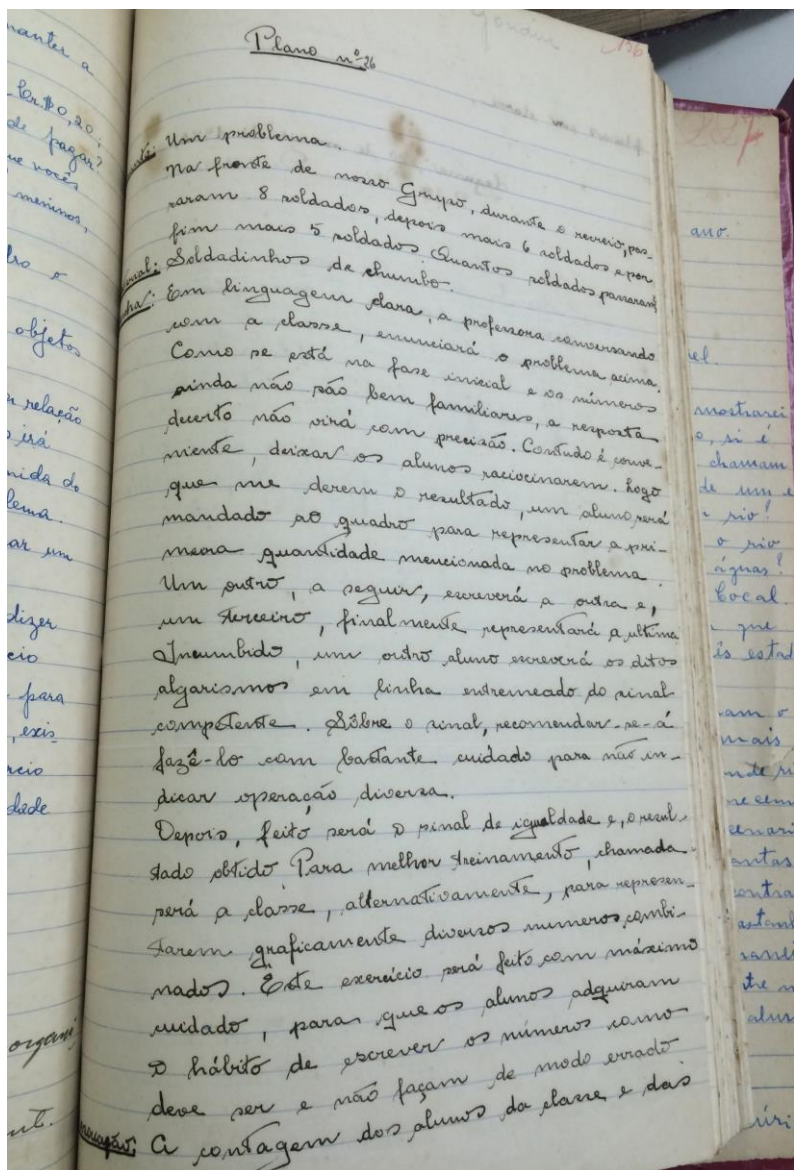 manter a
Cr.$0,20;
de pagar?
que vocês
meninos,
objetos
relação
irá
ar um
dizer
para
exis-
dade
organi
Plano nº 26
136
Um problema.
Na fronte de nosso Grupo, durante o recreio, pas-
saram 8 soldados, depois mais 6 soldados e por
fim mais 5 soldados. Quantos soldados passaram
Soldadinhos de chumbo.
Em linguagem clara, a professora conversando
com a classe, enunciará o problema acima.
Como se está na fase inicial e os números
ainda não são bem familiares, a resposta
decerto não virá com precisão. Contudo é conve-
niente, deixar os alunos raciocinarem. Logo
que me derem o resultado, um aluno será
mandado ao quadro para representar a pri-
meira quantidade mencionada no problema.
Um outro, a seguir, escreverá a outra e,
um terceiro, finalmente representará a ultima
Incumbido, um outro aluno escreverá os ditos
algarismos em linha entremeado do sinal
competente. Sôbre o sinal, recomendar-se-á
fazê-lo com bastante cuidado para não in-
dicar operação diversa.
Depois, feito será o sinal de igualdade e, o resul-
tado obtido Para melhor treinamento, chamada
será a classe, alternativamente, para represen-
tarem graficamente diversos numeros, combi-
nados. Êste exercício será feito com máximo
cuidado, para que os alunos adquiram
o hábito de escrever os números como
deve ser e não façam de modo errado
A contagem dos alunos da classe e das
227
ano.
mostrarei
o, si é
chamam
de um e
rio?
o rio
águas?
local.
que
mais